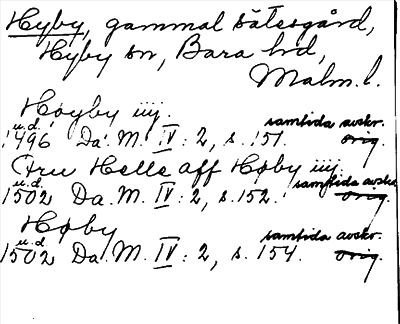 Hyby, gammal sätesgård,
Hyby sn, Bara hd,
Malm. l.
Høyby iiij.
u.d. samtida avskr.
1496 Da. M. IV : 2, s. 151. orig.
Fru Helle aff Høby iiij
u.d. samtida avskr.
1502 Da. M. IV : 2, s. 152. orig.
Høby
u.d. samtida avskr.
1502 Da. M. IV : 2, s. 154. orig.